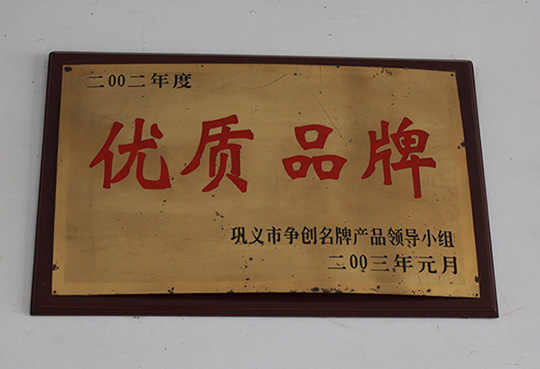 二00二年度
优质品牌
巩义市争创名牌产品领导小组
二00三年元月